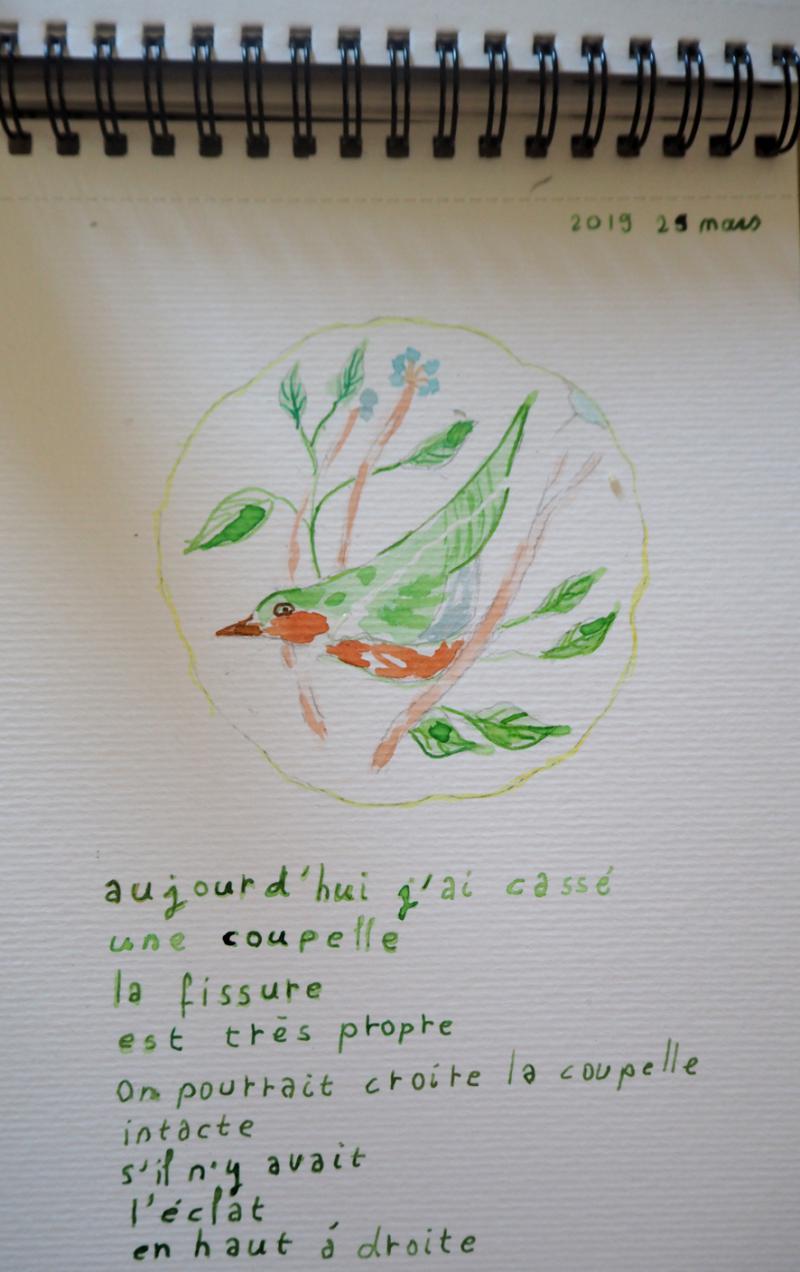 2019 25 mars
aujourd'hui j'ai cassé
une coupelle
la fissure
est très propre
on pourrait croire la coupelle
intacte
s'il n'y avait
l'éclat
en haut à droite